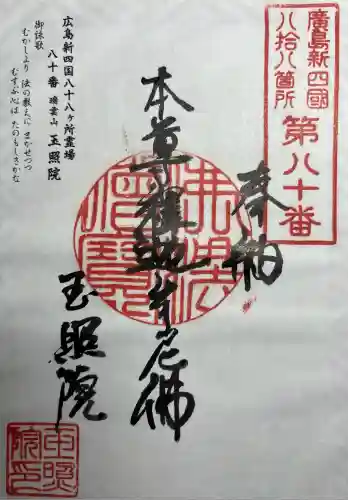 廣島新四國
八拾八箇所
第八十番
奉納
本尊釋迦牟尼佛
玉照院
広島新四国八十八ヶ所霊場
八十番 瑞雲山 玉照院
御詠歌
むかしより 法の教えに まかせつつ
むすぶ心は たのもしきかな
佛法僧寶
玉照
院印